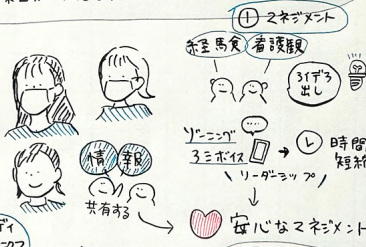 ① マネジメント
経験 看護観
アイデア
出し
ゾーニング
時間
短縮
\ リーダーシップ /
情報
共有する
安心なマネジメント